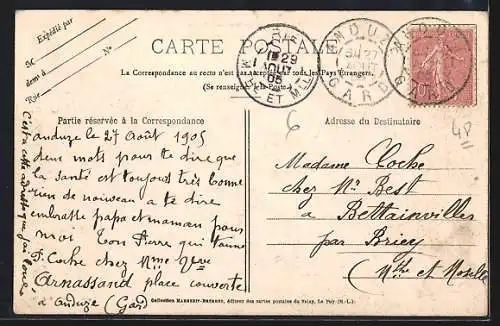 Expédié par
M
demt à
Rue
No
CARTE POSTALE
La Correspondance au recto n'est pas acceptée par tous les Pays Étrangers.
(Se renseigner à la Poste.)
29
AOUT
05
ET MLLE
ANDUZE
27
AOUT
GARD
Partie réservée à la Correspondance
Adresse du Destinataire
anduze le 27 Août 1905
deux mots pour te dire que
la santé est toujours très bonne
rien de nouveau a te dire
embrasse papa et maman pour
moi Ton Pierre qui t'aime
P. Coche chez Mme Vve
Arnassand place couverte
à anduze (Gard)
c'est a cette adresse que
6
4P
Madame Coche
chez Mr Best
a Bettainvillers
par Briey
(Mthe et Moselle
Collection MARGERIT-BRÉMOND, éditeur des cartes postales du Velay, Le Puy (H.-L.)